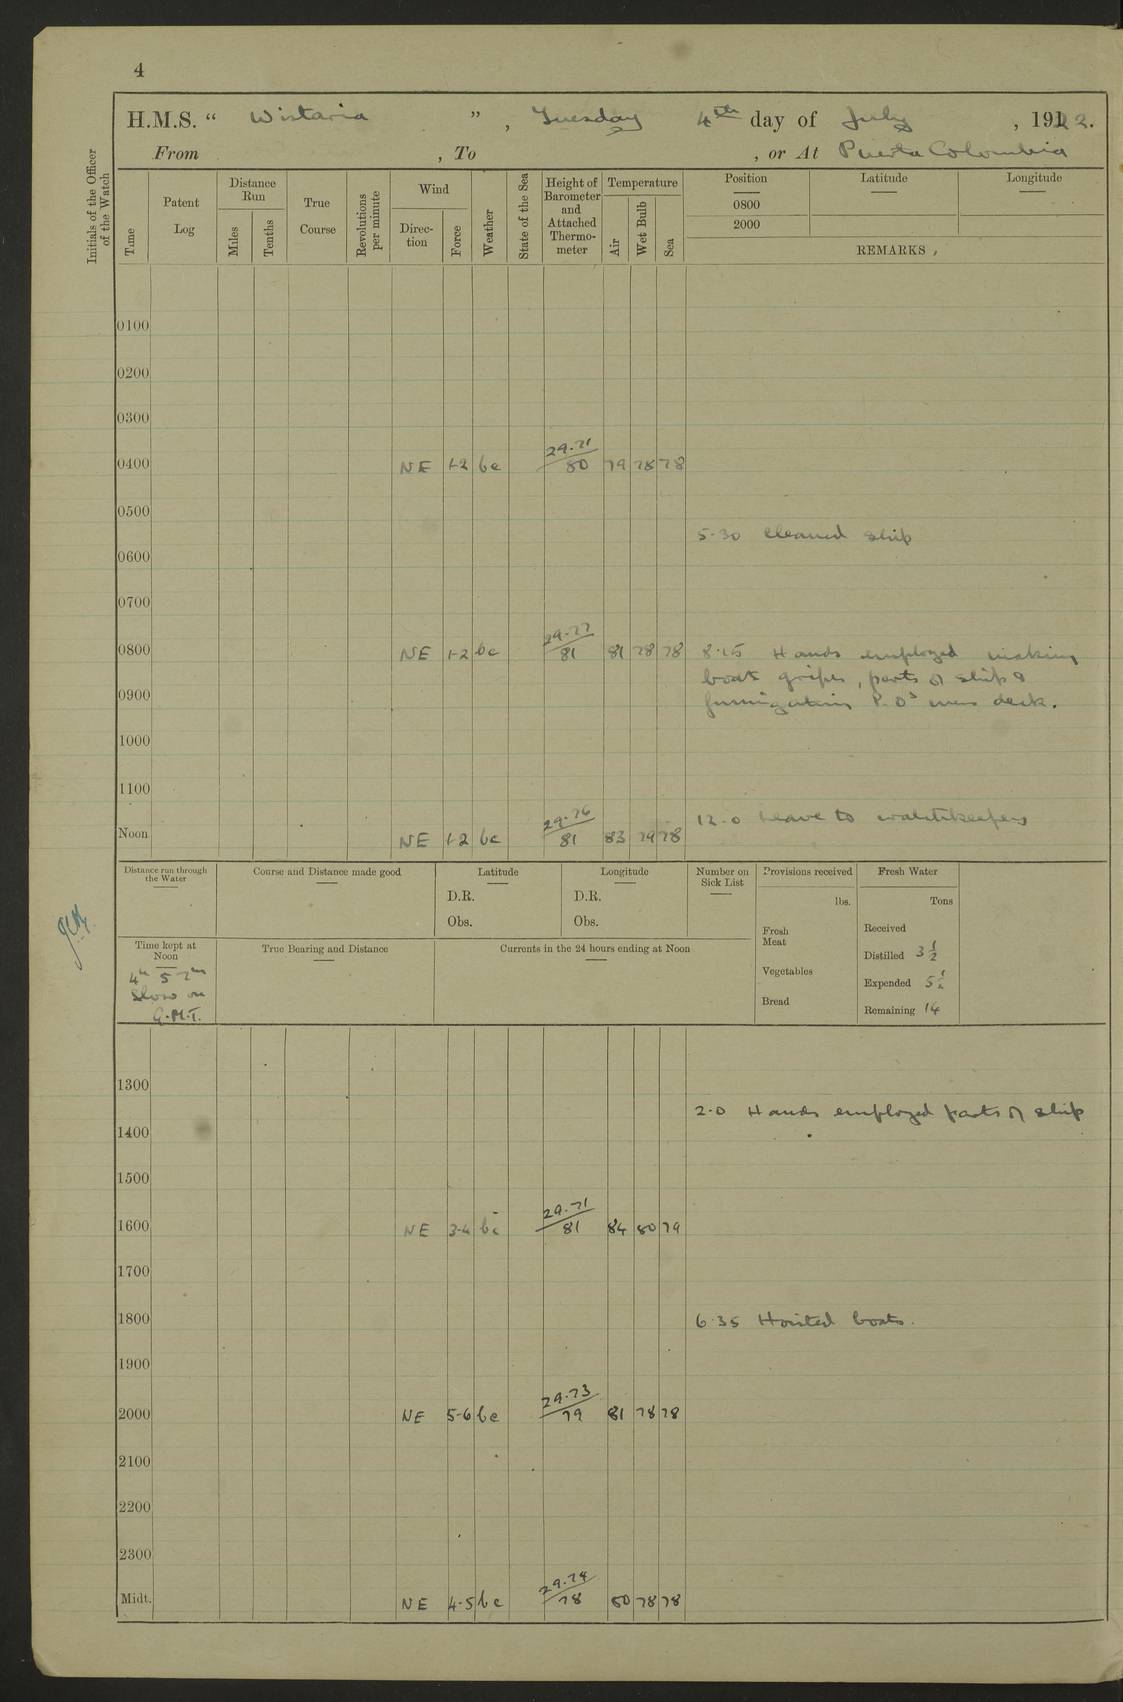 4
H.M.S. “ Wistaria ”, Tuesday 4th day of July, 1922.
From , To , or At Puerta Colombia
Initials of the Officer of the Watch
Time
Patent Log
Distance Run
Miles
Tenths
True Course
Revolutions per minute
Wind
Direction
Force
Weather
State of the Sea
Height of Barometer and Attached Thermometer
Temperature
Air
Wet Bulb
Sea
Position Latitude Longitude
0800
2000
REMARKS
0100
0200
0300
0400 NE 1-2 bc 29.71/80 79 78 78
0500
5.30 Cleaned ship
0600
0700
0800 NE 1-2 bc 29.77/81 81 78 78 8.15 Hands employed making
boats gripes, parts of ship &
0900 fumigating P.O's mess deck.
1000
1100
12.0 Leave to watchkeepers
Noon NE 1-2 bc 29.76/81 83 79 78
Distance run through the Water
Course and Distance made good
Latitude
D.R.
Obs.
Longitude
D.R.
Obs.
Number on Sick List
Provisions received
lbs.
Fresh Meat
Vegetables
Bread
Fresh Water
Tons
Received
Distilled 3 1/2
Expended 5 1/2
Remaining 14
Time kept at Noon
4h 57m
Slow on
G.M.T.
True Bearing and Distance
Currents in the 24 hours ending at Noon
1300
2.0 Hands employed parts of ship
1400
1500
1600 NE 3-4 bc 29.71/81 84 80 79
1700
1800 6.35 Hoisted boats.
1900
2000 NE 5-6 bc 29.73/79 81 78 78
2100
2200
2300
Midt. NE 4-5 bc 29.74/78 80 78 78